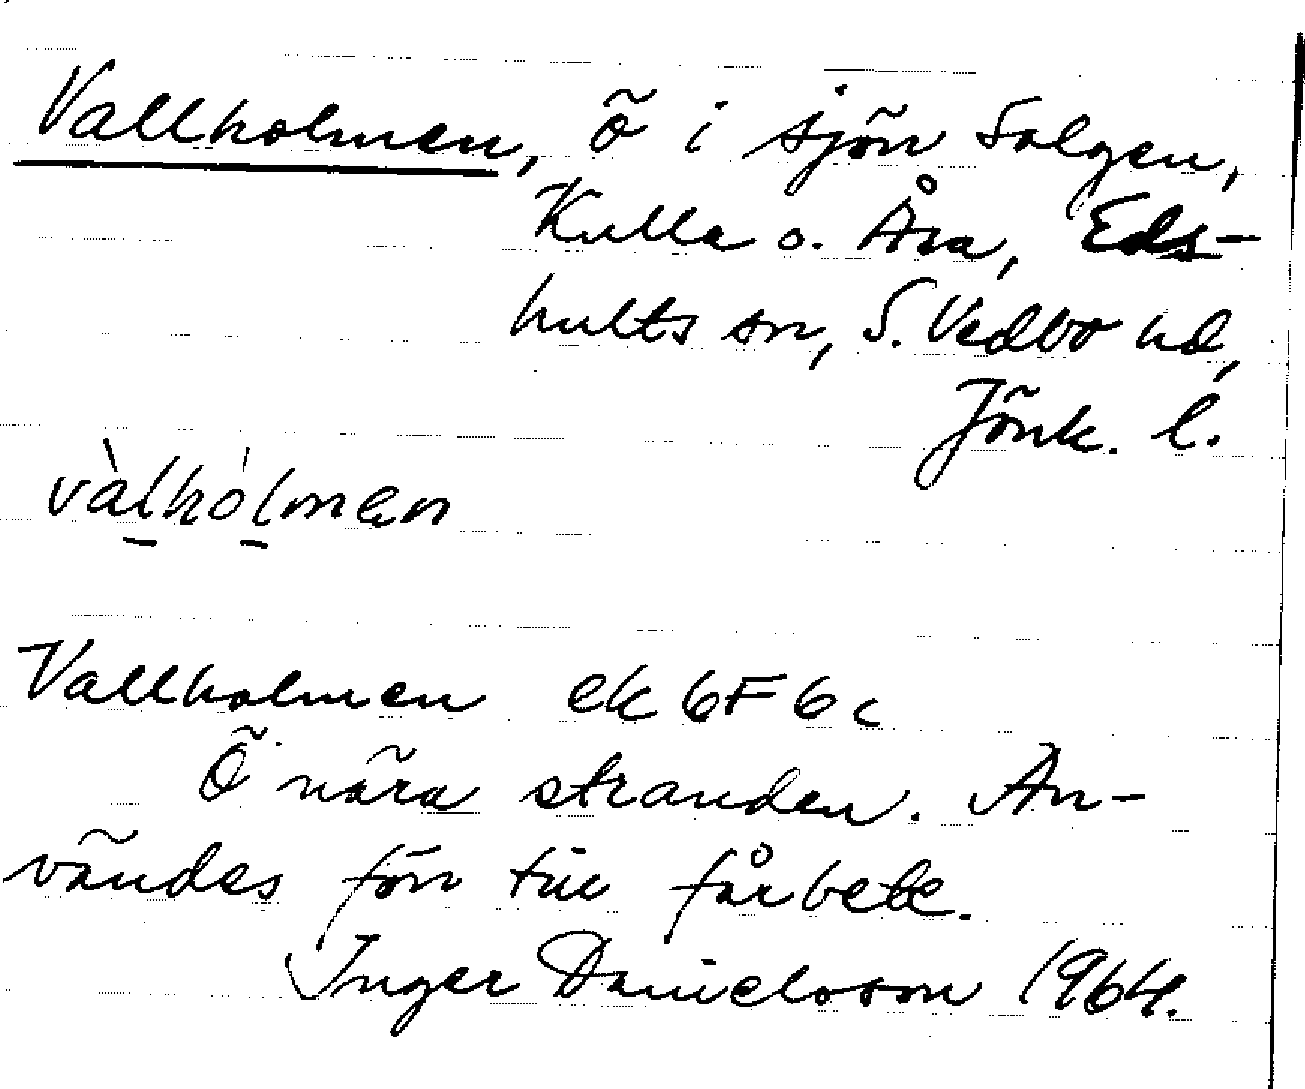 Vallholmen, ö i sjön Solgen,
Kulla o. Åsa, Eds-
hults sn, S. Vedbo hd,
Jönk. l.
vàlhólmen
Vallholmen ek 6F6c
Ö nära stranden. An-
vändes förr till fårbete.
Inger Danielsson 1964.